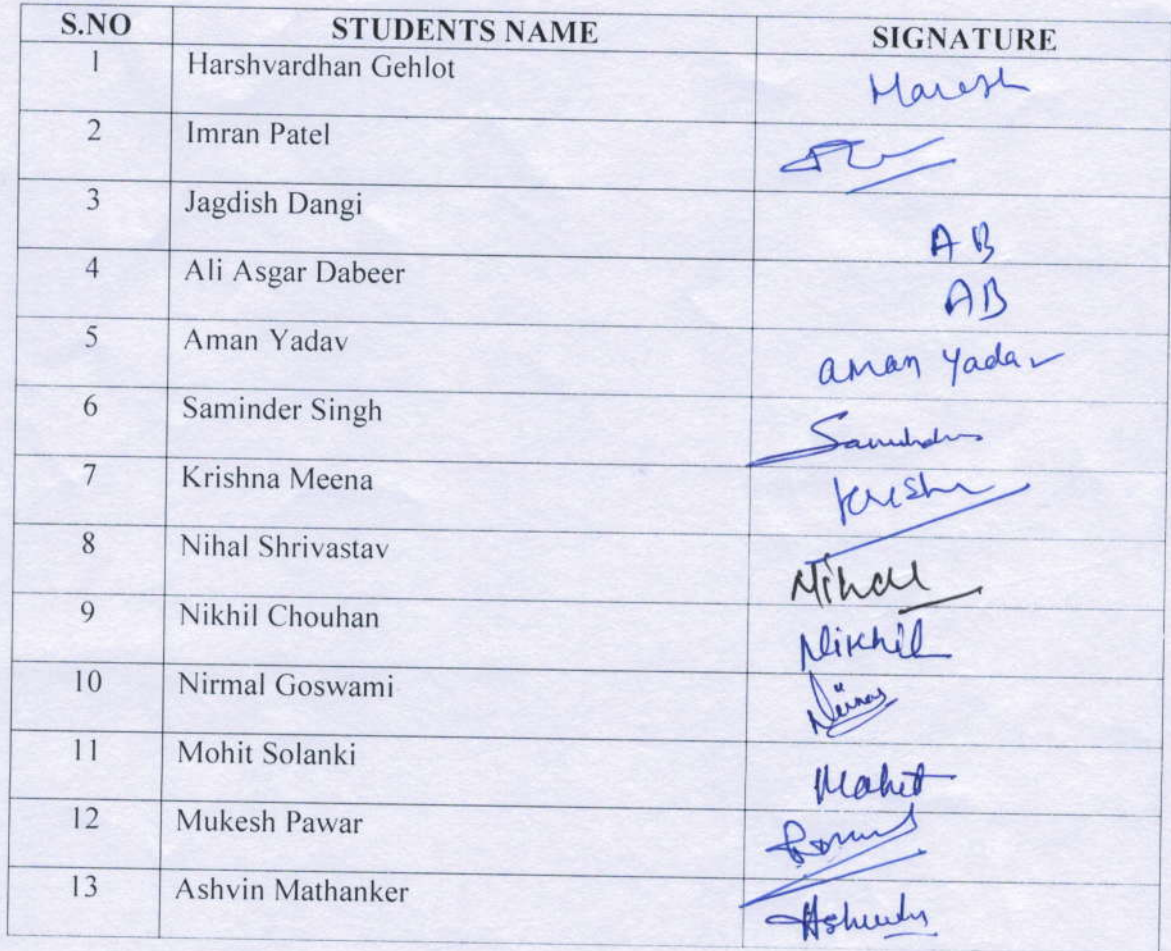 S.NO STUDENTS NAME SIGNATURE
1 Harshvardhan Gehlot
2 Imran Patel
3 Jagdish Dangi AB
4 Ali Asgar Dabeer AB
5 Aman Yadav aman yadav
6 Saminder Singh
7 Krishna Meena
8 Nihal Shrivastav Nihal
9 Nikhil Chouhan Nikhil
10 Nirmal Goswami
11 Mohit Solanki Mohit
12 Mukesh Pawar
13 Ashvin Mathanker